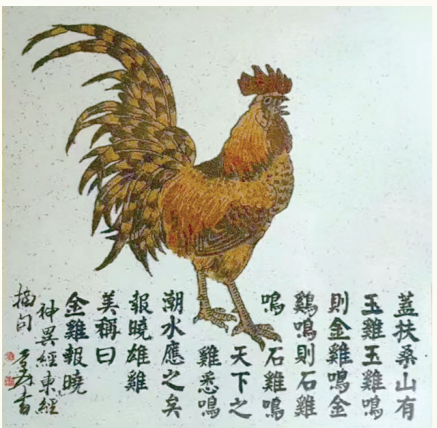 蓋扶桑山有
玉雞玉雞鳴
則金雞鳴金
鷄鳴則石雞
鳴石雞鳴
天下之
雞悉鳴
潮水應之矣
報曉雄雞
美稱曰
金雞報曉
神異經東經
摘句